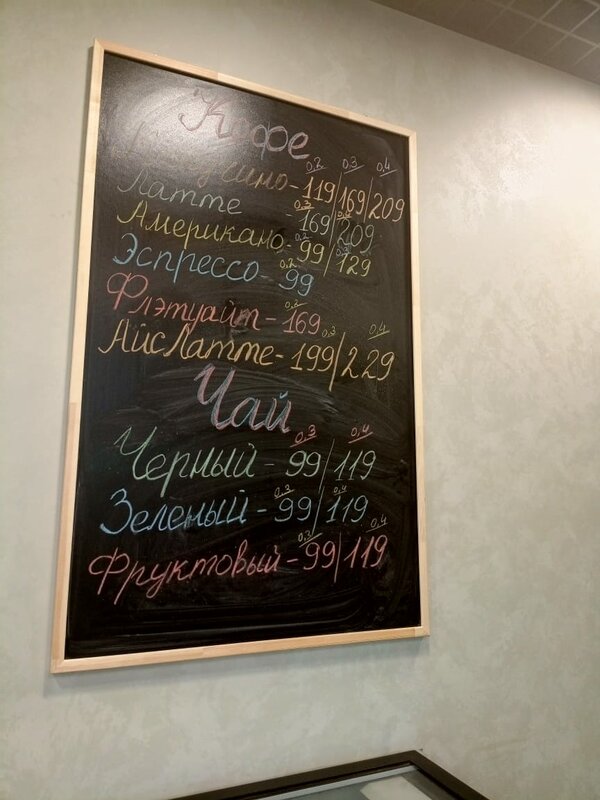 Кофе
0,2 0,3 0,4
Капучино - 119/169/209
Латте - 169/209
0,3 0,4
Американо - 99/129
0,2 0,3
Эспрессо - 99
0,2
Флэтуайт - 169
0,3 0,4
АйсЛатте - 199/229
Чай
0,3 0,4
Черный - 99/119
0,3 0,4
Зеленый - 99/119
0,3 0,4
Фруктовый - 99/119